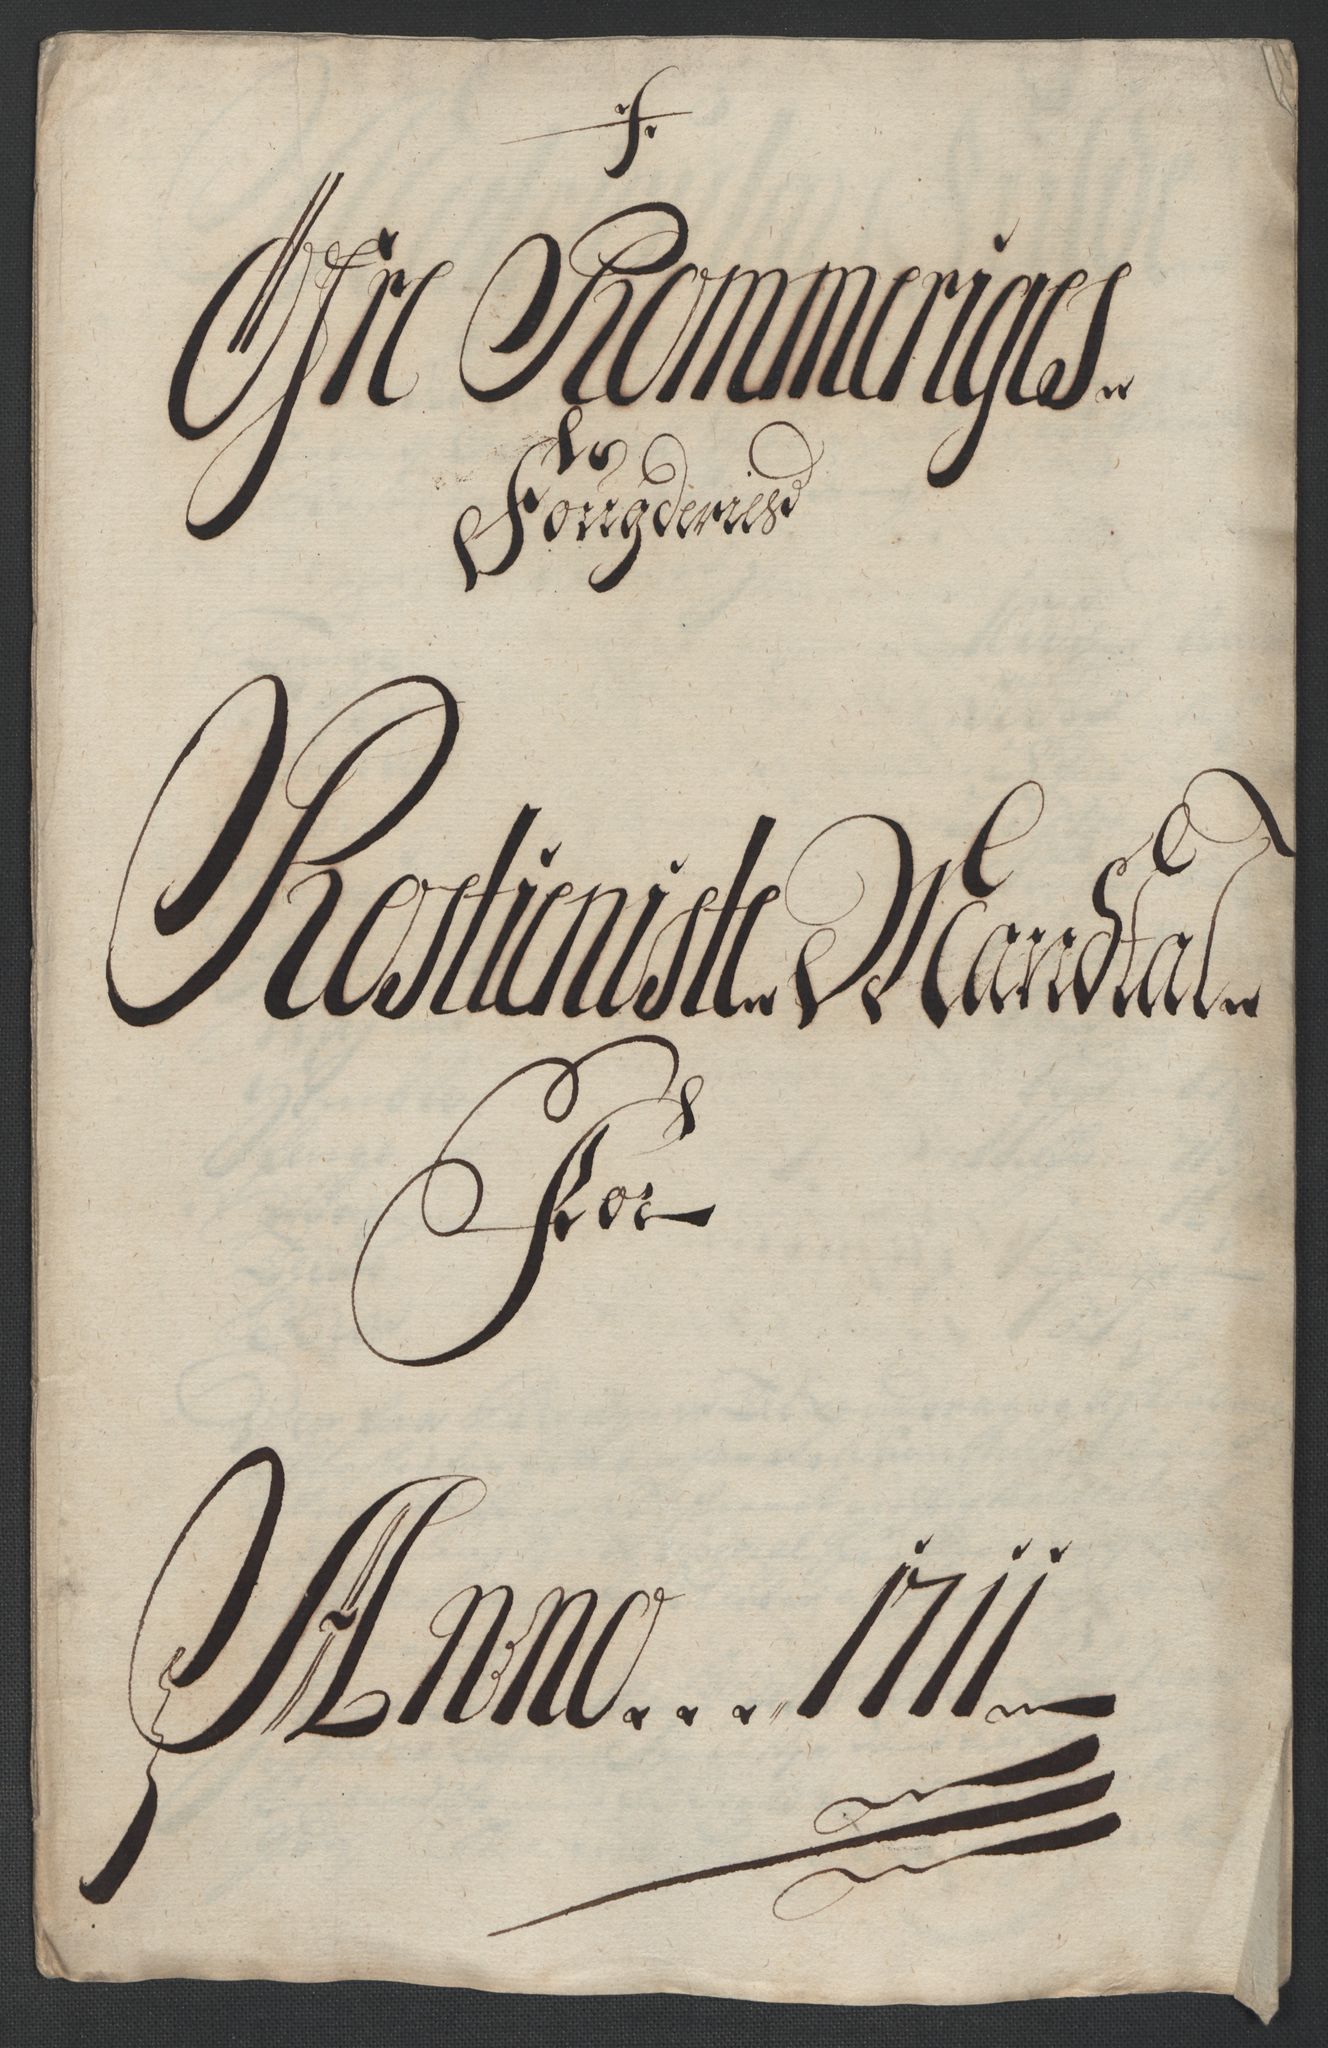 f.
Øfre Rommeriges
Fougderies
Rostieniste Mandtal
For
Anno . . . 1711